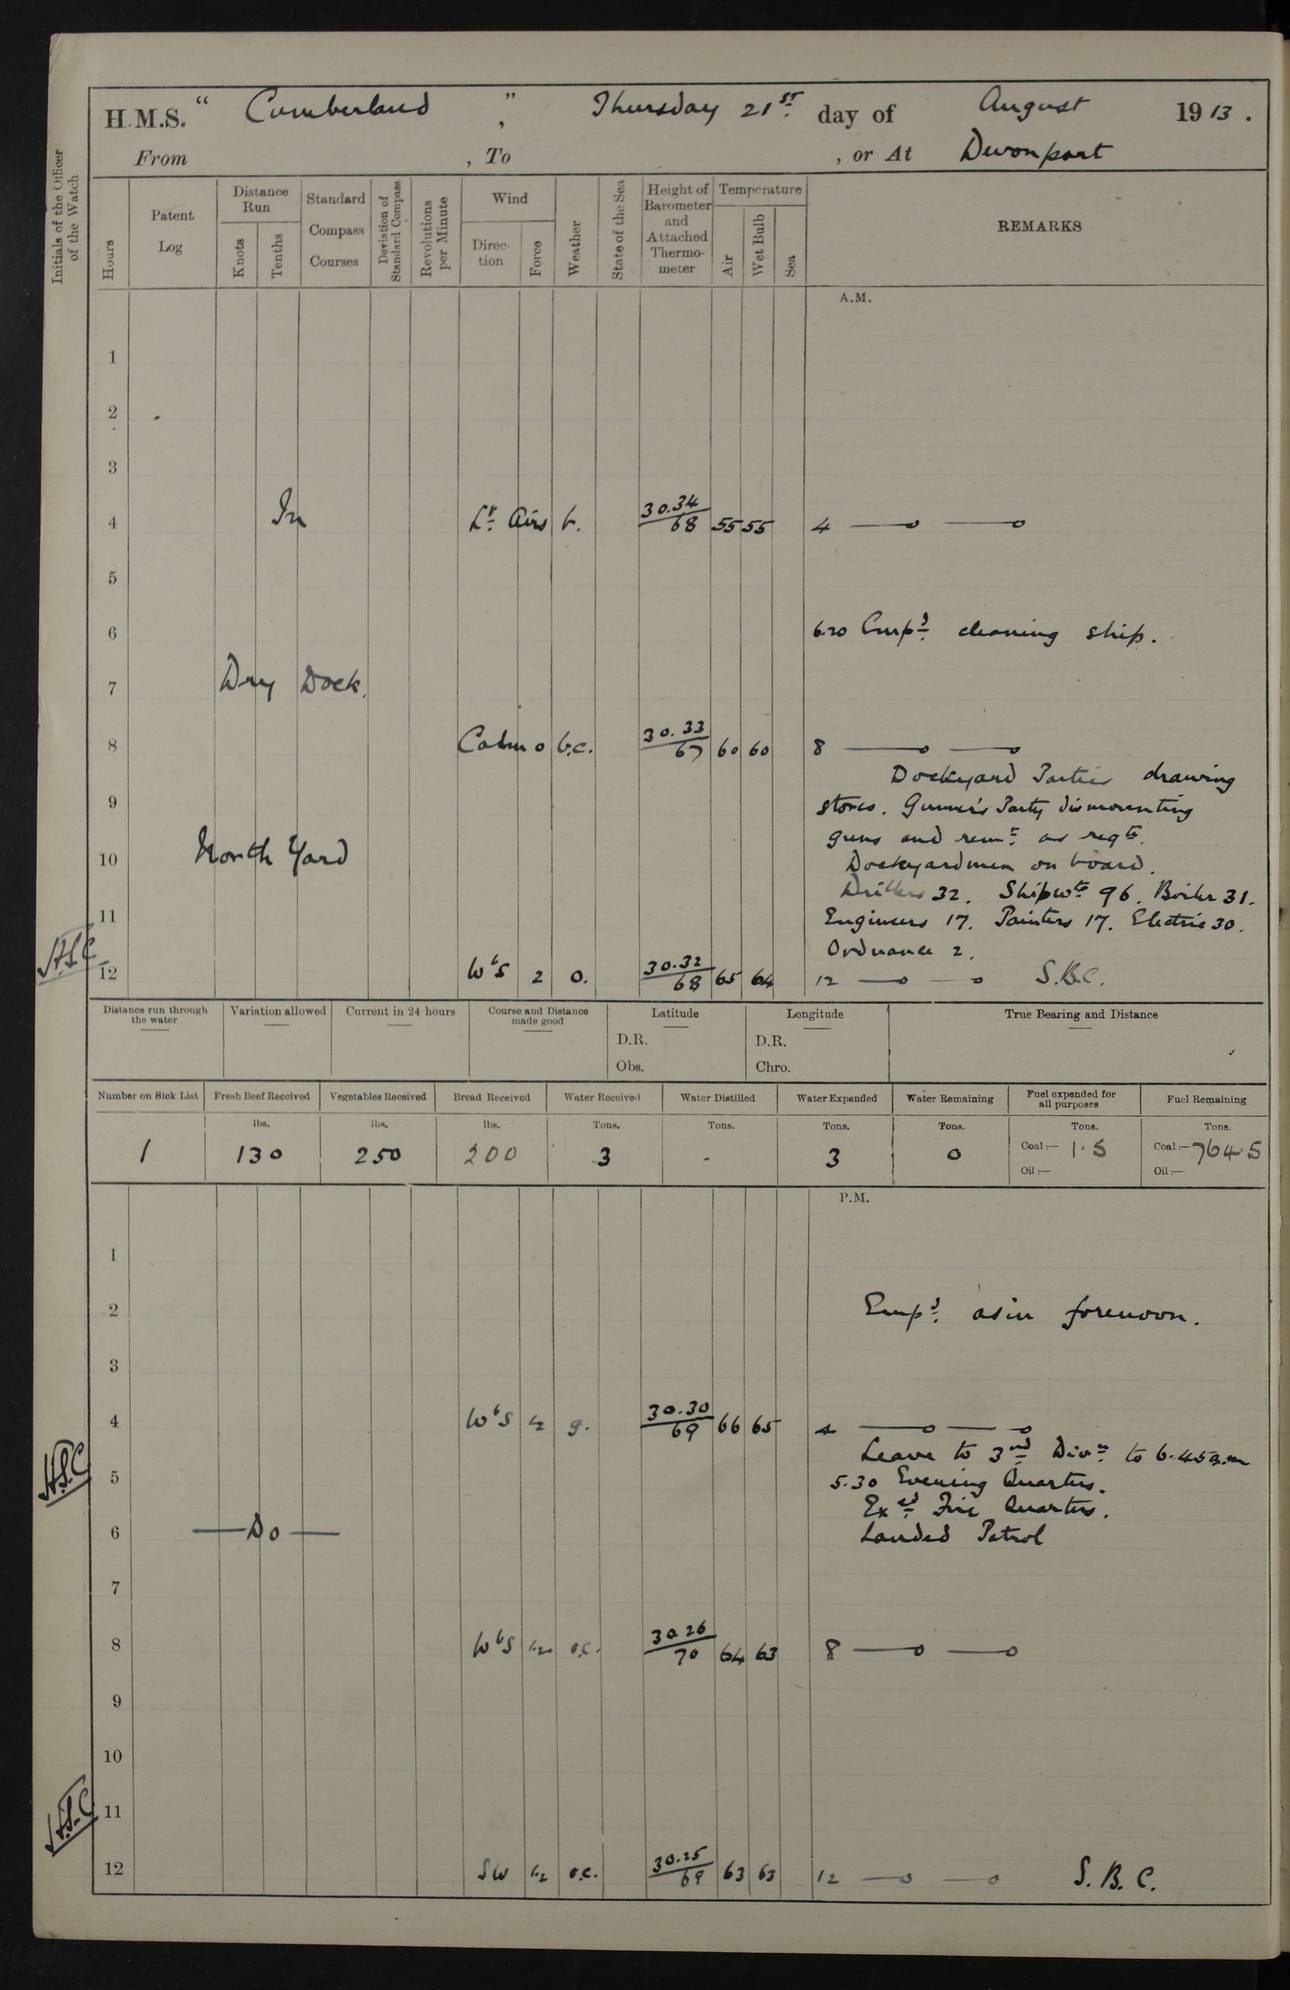 H.M.S. " Cumberland ", Thursday 21st day of August 1913.
From , To , or At Devonport
Initials of the Officer of the Watch
Hours
Patent Log
Distance Run
Knots
Tenths
Standard Compass Courses
Deviation of Standard Compass
Revolutions per Minute
Wind
Direc-tion
Force
Weather
State of the Sea
Height of Barometer and Attached Thermo-meter
Temperature
Air
Wet Bulb
Sea
REMARKS
A.M.
1
2
3
4 In Lt Airs b. 30.34/68 55 55 4 —o —o
5
6 6.20 Empd cleaning ship.
7 Dry Dock.
8 Calm 0 b.c. 30.33/67 60 60 8 —o —o
Dockyard Parties drawing
9 stores. Gunner's Party dismounting
guns and remr as reqte.
10 North Yard Dockyardmen on board.
Drillers 32. Shipwts 96. Boiler 31.
11 Engineers 17. Painters 17. Electric 30.
Ordnance 2.
12 WbS 2 o. 30.32/68 65 64 12 —o —o S.B.C.
Distance run through the water
Variation allowed
Current in 24 hours
Course and Distance made good
Latitude
D.R.
Obs.
Longitude
D.R.
Chro.
True Bearing and Distance
Number on Sick List
Fresh Beef Received
Vegetables Received
Bread Received
Water Received
Water Distilled
Water Expended
Water Remaining
Fuel expended for all purposes
Fuel Remaining
lbs. lbs. lbs. Tons. Tons. Tons. Tons. Tons. Tons.
1 130 250 200 3 - 3 0 Coal:— 1.5 Coal:— 764.5
Oil:— Oil:—
P.M.
1
2 Empd as in forenoon.
3
4 WbS 1.2 g. 30.30/69 66 65 4 —o —o
Leave to 3rd Divn to 6.45 a.m
5 5.30 Evening Quarters.
Exed Fire Quarters.
6 — Do — Landed Patrol
7
8 WbS 1.2 o.c. 30.26/70 64 63 8 —o —o
9
10
11
12 SW 1.2 o.c. 30.25/69 63 63 12 —o —o S.B.C.